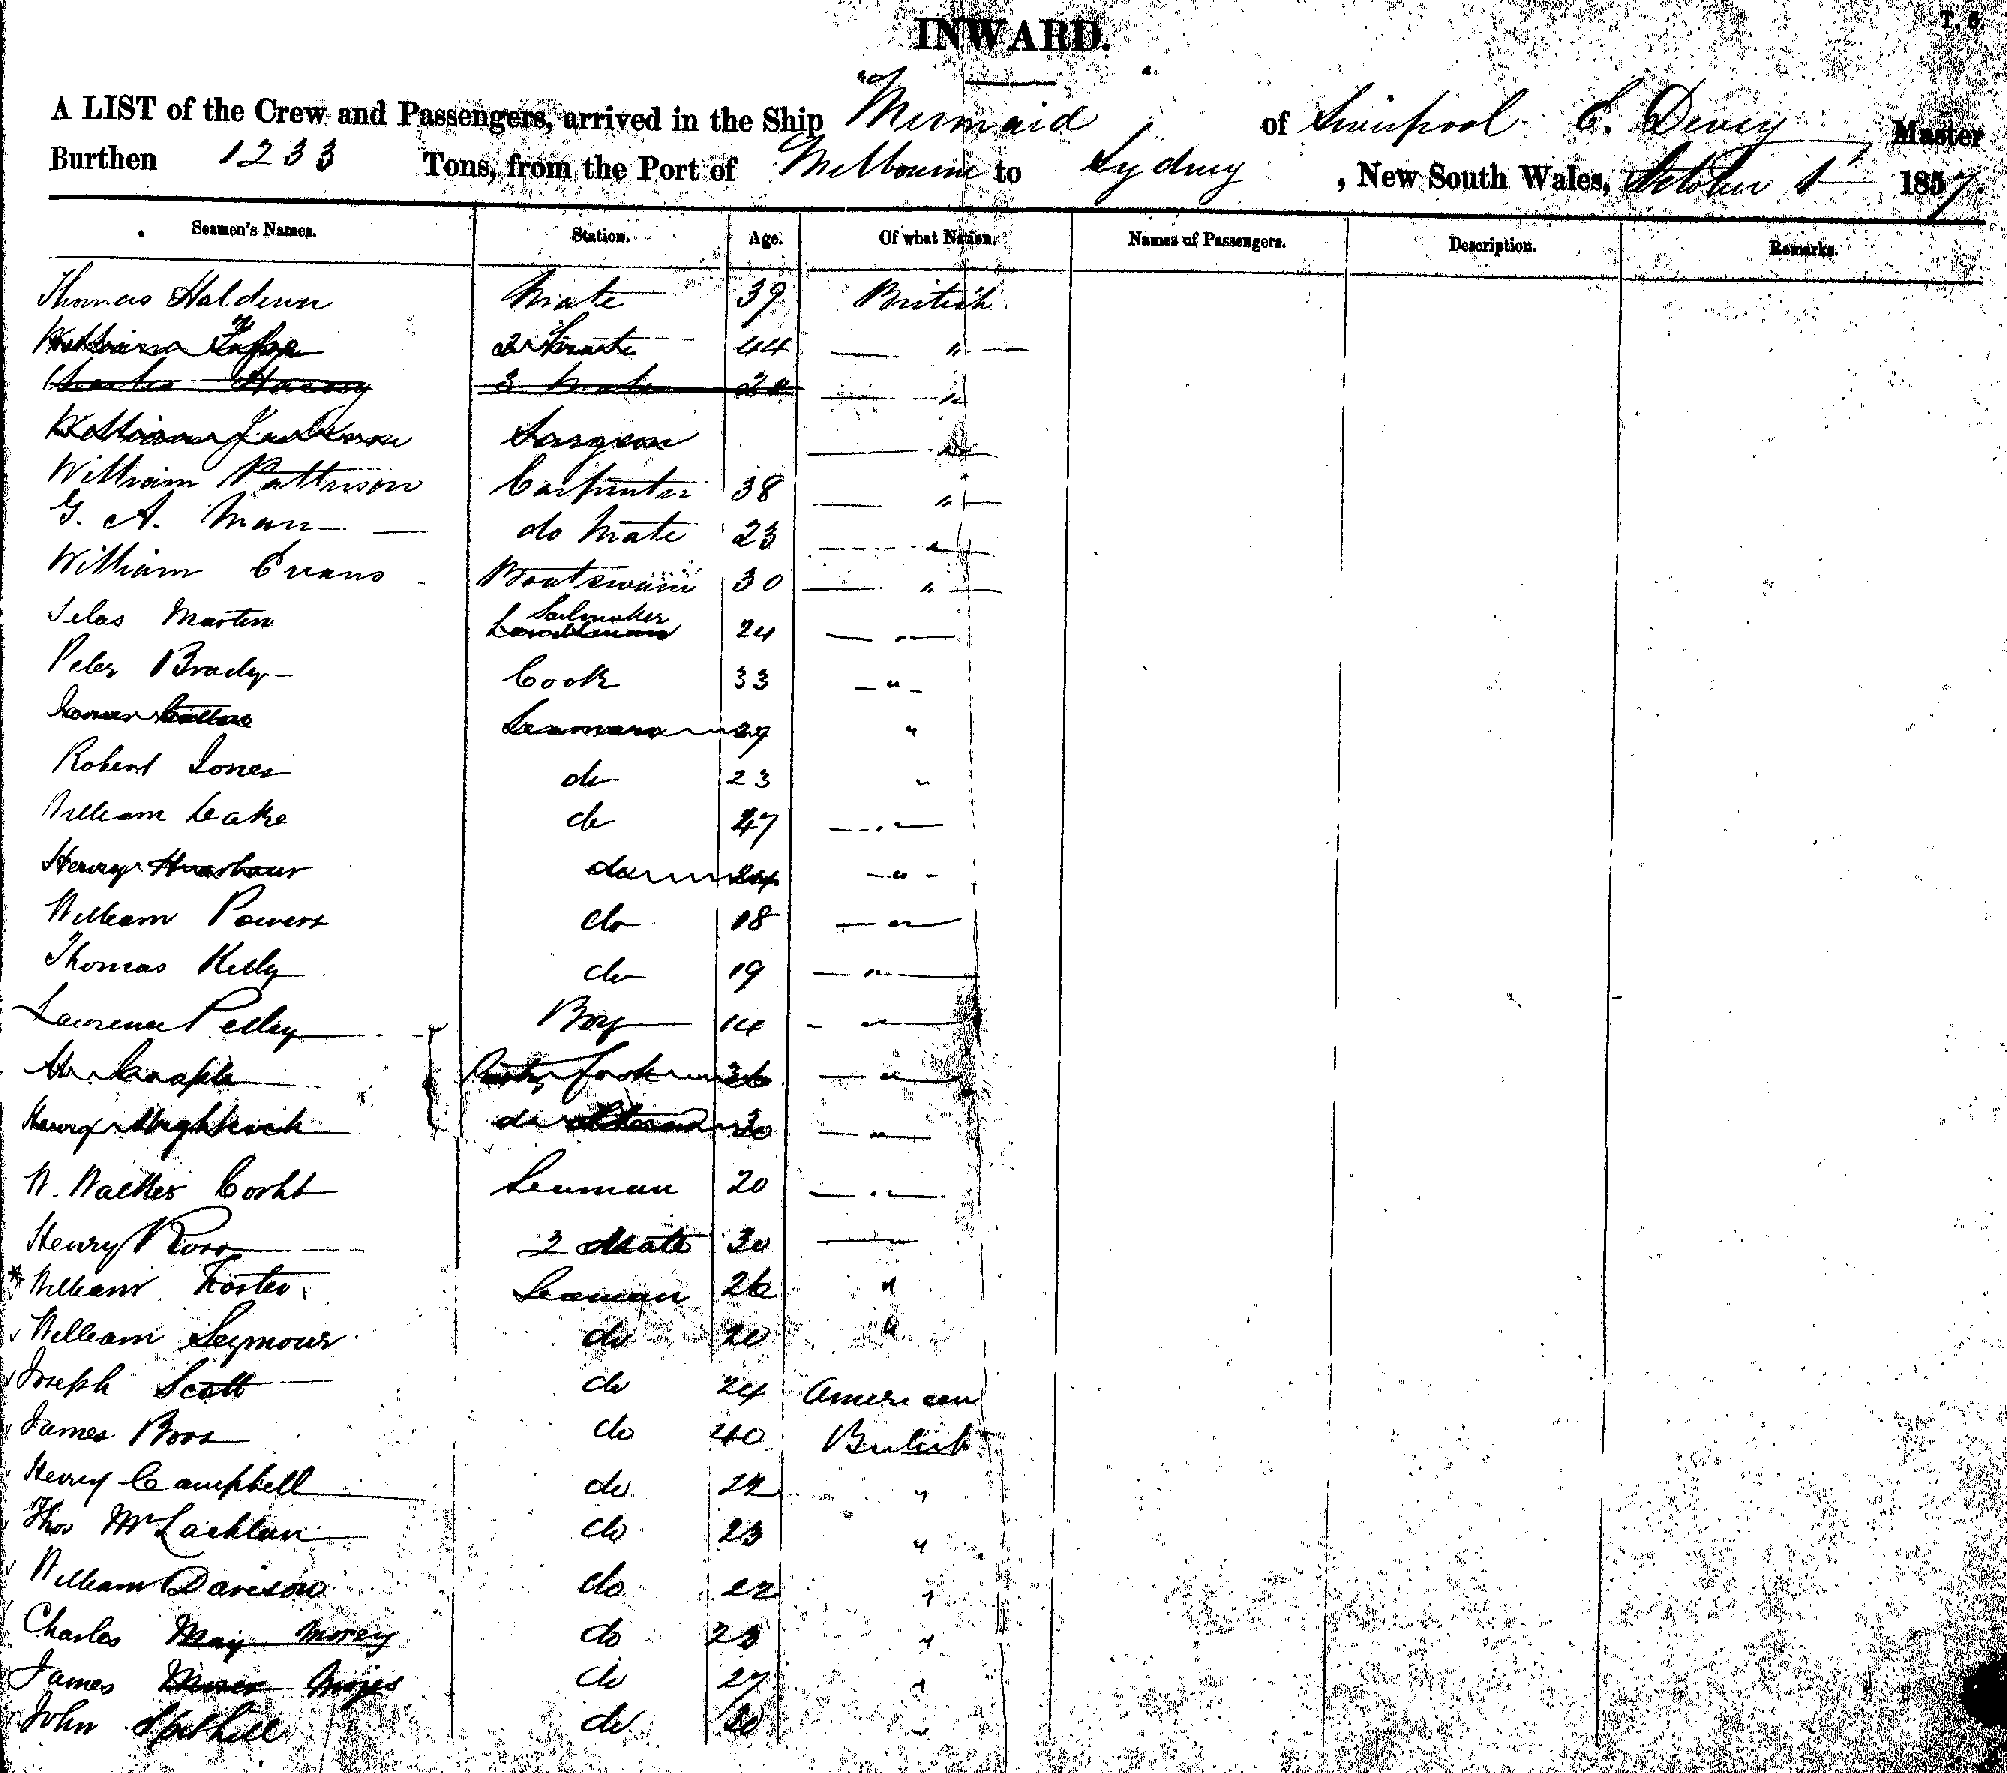 INWARD.
A LIST of the Crew and Passengers, arrived in the Ship "Mermaid" of Liverpool E. Devey Master
Burthen 1233 Tons, from the Port of Melbourne to Sydney, New South Wales, October 1st 1857.
Seamen's Names. Station. Age. Of what Nation. Names of Passengers. Description. Remarks.
Thomas Haldenn Mate 39 British
William 2nd Mate 44 — " —
Charles Harvey 3 Mate — "
William Surgeon — "
William Pattinson Carpenter 38 — " —
G. A. Mann — do Mate 23 — " —
William Evans Boatswain 30 — " —
Silas Martin Sailmaker 24 — " —
Peter Brady — Cook 33 — " —
James Seaman 29 "
Robert Jones do 23 "
William Leake do 27 — " —
Henry Harbour do 24 — " —
William Powers do 18 — " —
Thomas Kelly do 19 — " —
Lawrence Pelley Boy 14 — " —
Cook 36 — " —
Henry do 30 — " —
W. Walker Corht Seaman 20 — " —
Henry Ross 3 Mate 30 —
* William Foster Seaman 26 "
William Seymour do 20 "
Joseph Scott do 24 American
James Boss do 40 British
Henry Campbell do 22 "
Thos McLachlan do 23 "
William Davison do 22 "
Charles May Morey do 23 "
James do 27 "
John do 20 "